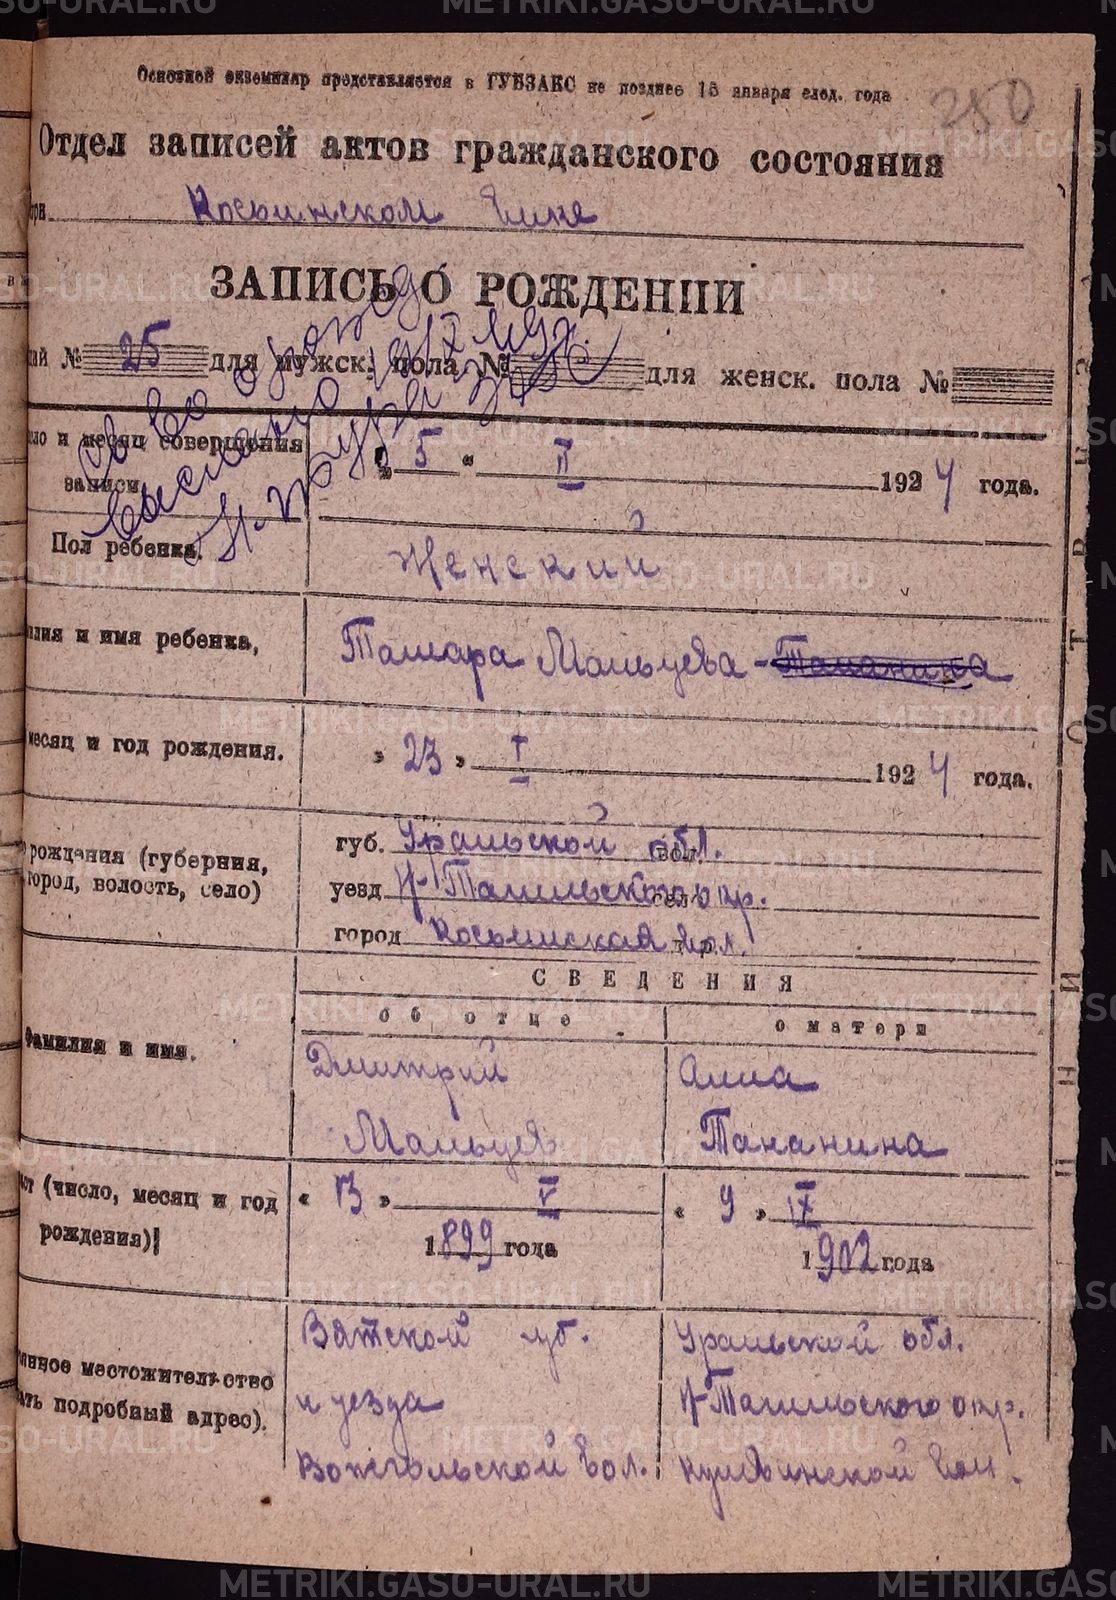 Основной экземпляр представляется в ГУБЗАКС не позднее 15 января след. года
250
Отдел записей актов гражданского состояния
при
ЗАПИСЬ О РОЖДЕНИИ
№ 25 для мужск. пола № для женск. пола №
и месяц совершения записи. » 5 « II 1924 года.
Пол ребенка. Женский
и имя ребенка, Тамара Мальцева - Тананина
месяц и год рождения. » 23 » I 1924 года.
рождения (губерния, город, волость, село)
губ. Уральской обл.
уезд Н-Тагильского окр.
город
СВЕДЕНИЯ
об отце
о матери
Фамилия и имя.
Дмитрий Мальцев
Анна Тананина
(число, месяц и год рождения)
« 13 » V 1899 года
« 9 » IX 1902 года
местожительство
подробный адрес).
Вятской губ.
и уезда
Вожгальской вол.
Уральской обл.
Н-Тагильского окр.
Кушвинской
METRIKI.GASO-URAL.RU